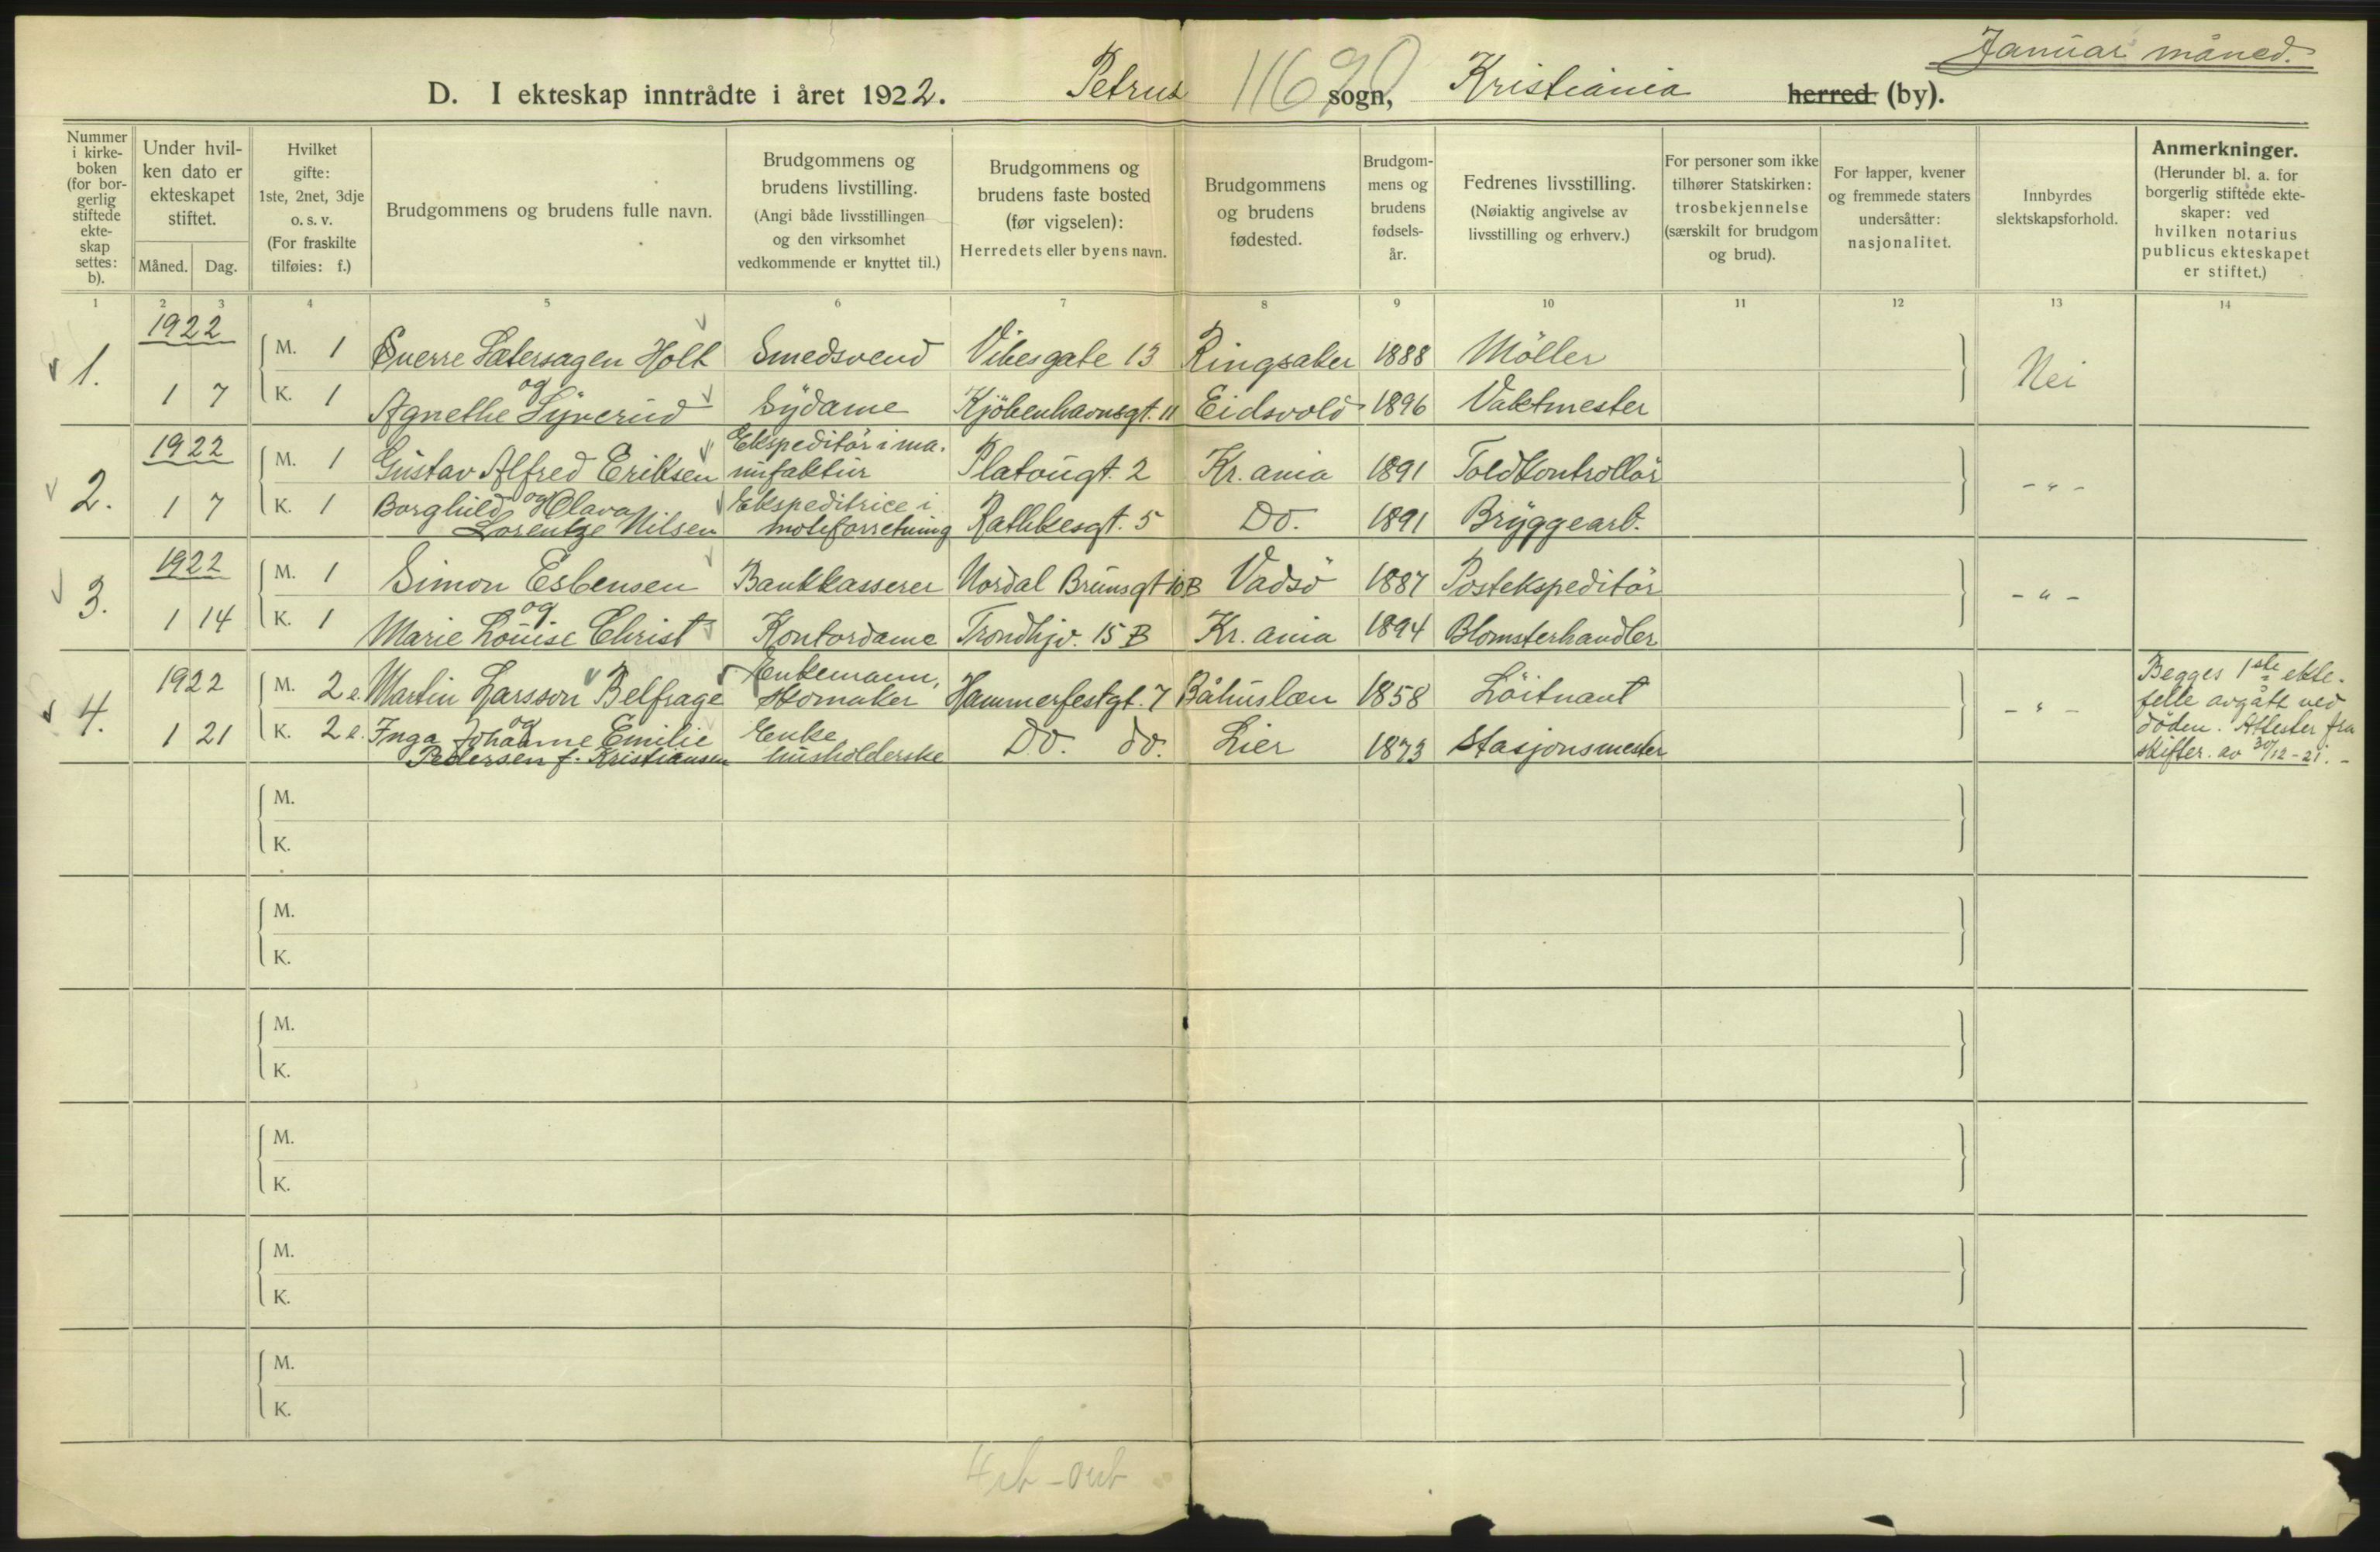 Januar måned.
D. I ekteskap inntrådte i året 1922. Petrus sogn, Kristiania herred (by).
Nummer i kirke-boken (for bor-gerlig stiftede ekte-skap settes: b).
Under hvil-ken dato er ekteskapet stiftet.
Måned. Dag.
Hvilket gifte: 1ste, 2net, 3dje o. s. v. (For fraskilte tilføies: f.)
Brudgommens og brudens fulle navn.
Brudgommens og brudens livstilling. (Angi både livsstillingen og den virksomhet vedkommende er knyttet til.)
Brudgommens og brudens faste bosted (før vigselen): Herredets eller byens navn.
Brudgommens og brudens fødested.
Brudgom-mens og brudens fødsels-år.
Fedrenes livsstilling. (Nøiaktig angivelse av livsstilling og erhverv.)
For personer som ikke tilhører Statskirken: trosbekjennelse (særskilt for brudgom og brud).
For lapper, kvener og fremmede staters undersåtter: nasjonalitet.
Innbyrdes slektskapsforhold.
Anmerkninger. (Herunder bl. a. for borgerlig stiftede ekte-skaper: ved hvilken notarius publicus ekteskapet er stiftet.)
1 2 3 4 5 6 7 8 9 10 11 12 13 14
1922
1. M. 1 Sverre Sætersagen Holt Smedsvend Vibesgate 13 Ringsaker 1888 Möller Nei
og
1 7 K. 1 Agnethe Lynerud Sydame Kjöbenhavnsgt. 11 Eidsvold 1896 Vaktmester
1922 Ekspeditör i ma-
2. M. 1 Gustav Alfred Eriksen nufaktur Platougt. 2 Kr.ania 1891 Toldkontrollör - " -
og
1 7 K. 1 Borghild Olava Ekspeditrice i
Lorentze Nilsen moteforretning Rathkesgt. 5 Do. 1891 Bryggearb.
1922
3. M. 1 Simon Esbensen Bankkasserer Nordal Brunsgt 10B Vadsö 1887 Postekspeditör - " -
og
1 14 K. 1 Marie Louise Christ Kontordame Trondhjv. 15 B Kr.ania 1894 Blomsterhandler
1922 Enkemann, Begges 1ste ekte-
4. M. 2 e. Martin Larsson Belfrage skomaker Hammerfestgt. 7 Båhuslæn 1858 Löitnant - " - felle avgått ved
og döden. Attester fra
1 21 K. 2 e. Inga Johanne Emilie Enke
Pedersen f. Kristiansen husholderske Do. do. Lier 1873 Stasjonsmester skifter. av 30/12-21. -
M.
K.
M.
K.
M.
K.
M.
K.
M.
K.
M.
K.